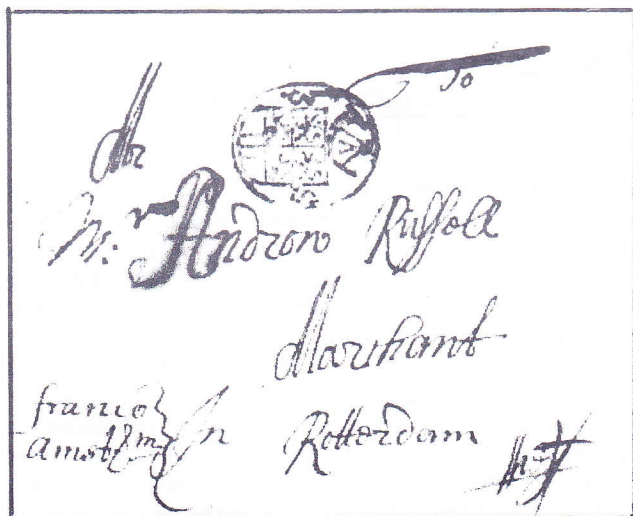 Mr
Mr. Andrew Russell
Marchant
franco
Amstdm In Rotterdam